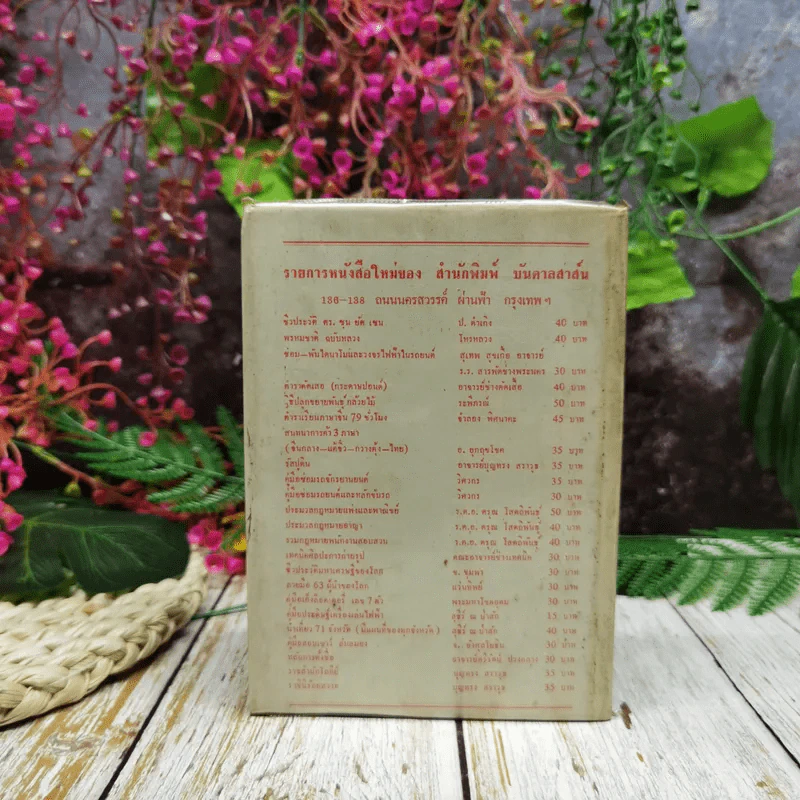 รายการหนังสือใหม่ของ สำนักพิมพ์ บันดาลสาส์น
136-138 ถนนนครสวรรค์ ผ่านฟ้า กรุงเทพ ฯ
ชีวประวัติ ดร. ซุน ยัด เซน ป. ดำเกิง 40 บาท
พรหมชาติ ฉบับหลวง โหรหลวง 40 บาท
ซ่อม-พันไดนาโมและวงจรไฟฟ้าในรถยนต์ สุเทพ อาจารย์
ร.ร. สารพัดช่างพระนคร 30 บาท
ตำราตัดเสื้อ (กระดาษปอนด์) อาจารย์ช่างตัดเสื้อ 40 บาท
วิธีปลูกขยายพันธุ์กล้วยไม้ ระพีภรณ์ 50 บาท
ตำราเรียนภาษาจีน 79 ชั่วโมง จำลอง พิศนาคะ 45 บาท
สนทนาการค้า 3 ภาษา
(จีนกลาง-แต้จิ๋ว-กวางตุ้ง-ไทย) 35 บาท
รัสปูติน อาจารย์บุญทรง สราวุธ 35 บาท
คู่มือซ่อมรถจักรยานยนต์ วิศวกร 35 บาท
คู่มือซ่อมรถยนต์และหลักขับรถ วิศวกร 30 บาท
ประมวลกฎหมายแพ่งและพาณิชย์ ร.ต.อ. ดรุณ โสตถิพันธุ์ 50 บาท
ประมวลกฎหมายอาญา ร.ต.อ. ดรุณ โสตถิพันธุ์ 40 บาท
รวมกฎหมายพนักงานสอบสวน ร.ต.อ. ดรุณ โสตถิพันธุ์ 40 บาท
เทคนิคศิลปะการถ่ายรูป คณะอาจารย์ช่างเทคนิค 30 บาท
ชีวประวัติมหาเศรษฐีของโลก ช. ชุมพร 30 บาท
ลายมือ 63 ผู้นำของโลก 30 บาท
เลข 7 ตัว 30 บาท
คู่มือประดิษฐ์เครื่องเล่นไฟฟ้า สุชีร์ ณ ลำลึก 15 บาท
นำเที่ยว 71 จังหวัด (มีแผนที่ของทุกจังหวัด) สุชีร์ ณ ลำลึก 40 บาท
30 บาท
30 บาท
บุญทรง สราวุธ 35 บาท
บุญทรง สราวุธ 35 บาท